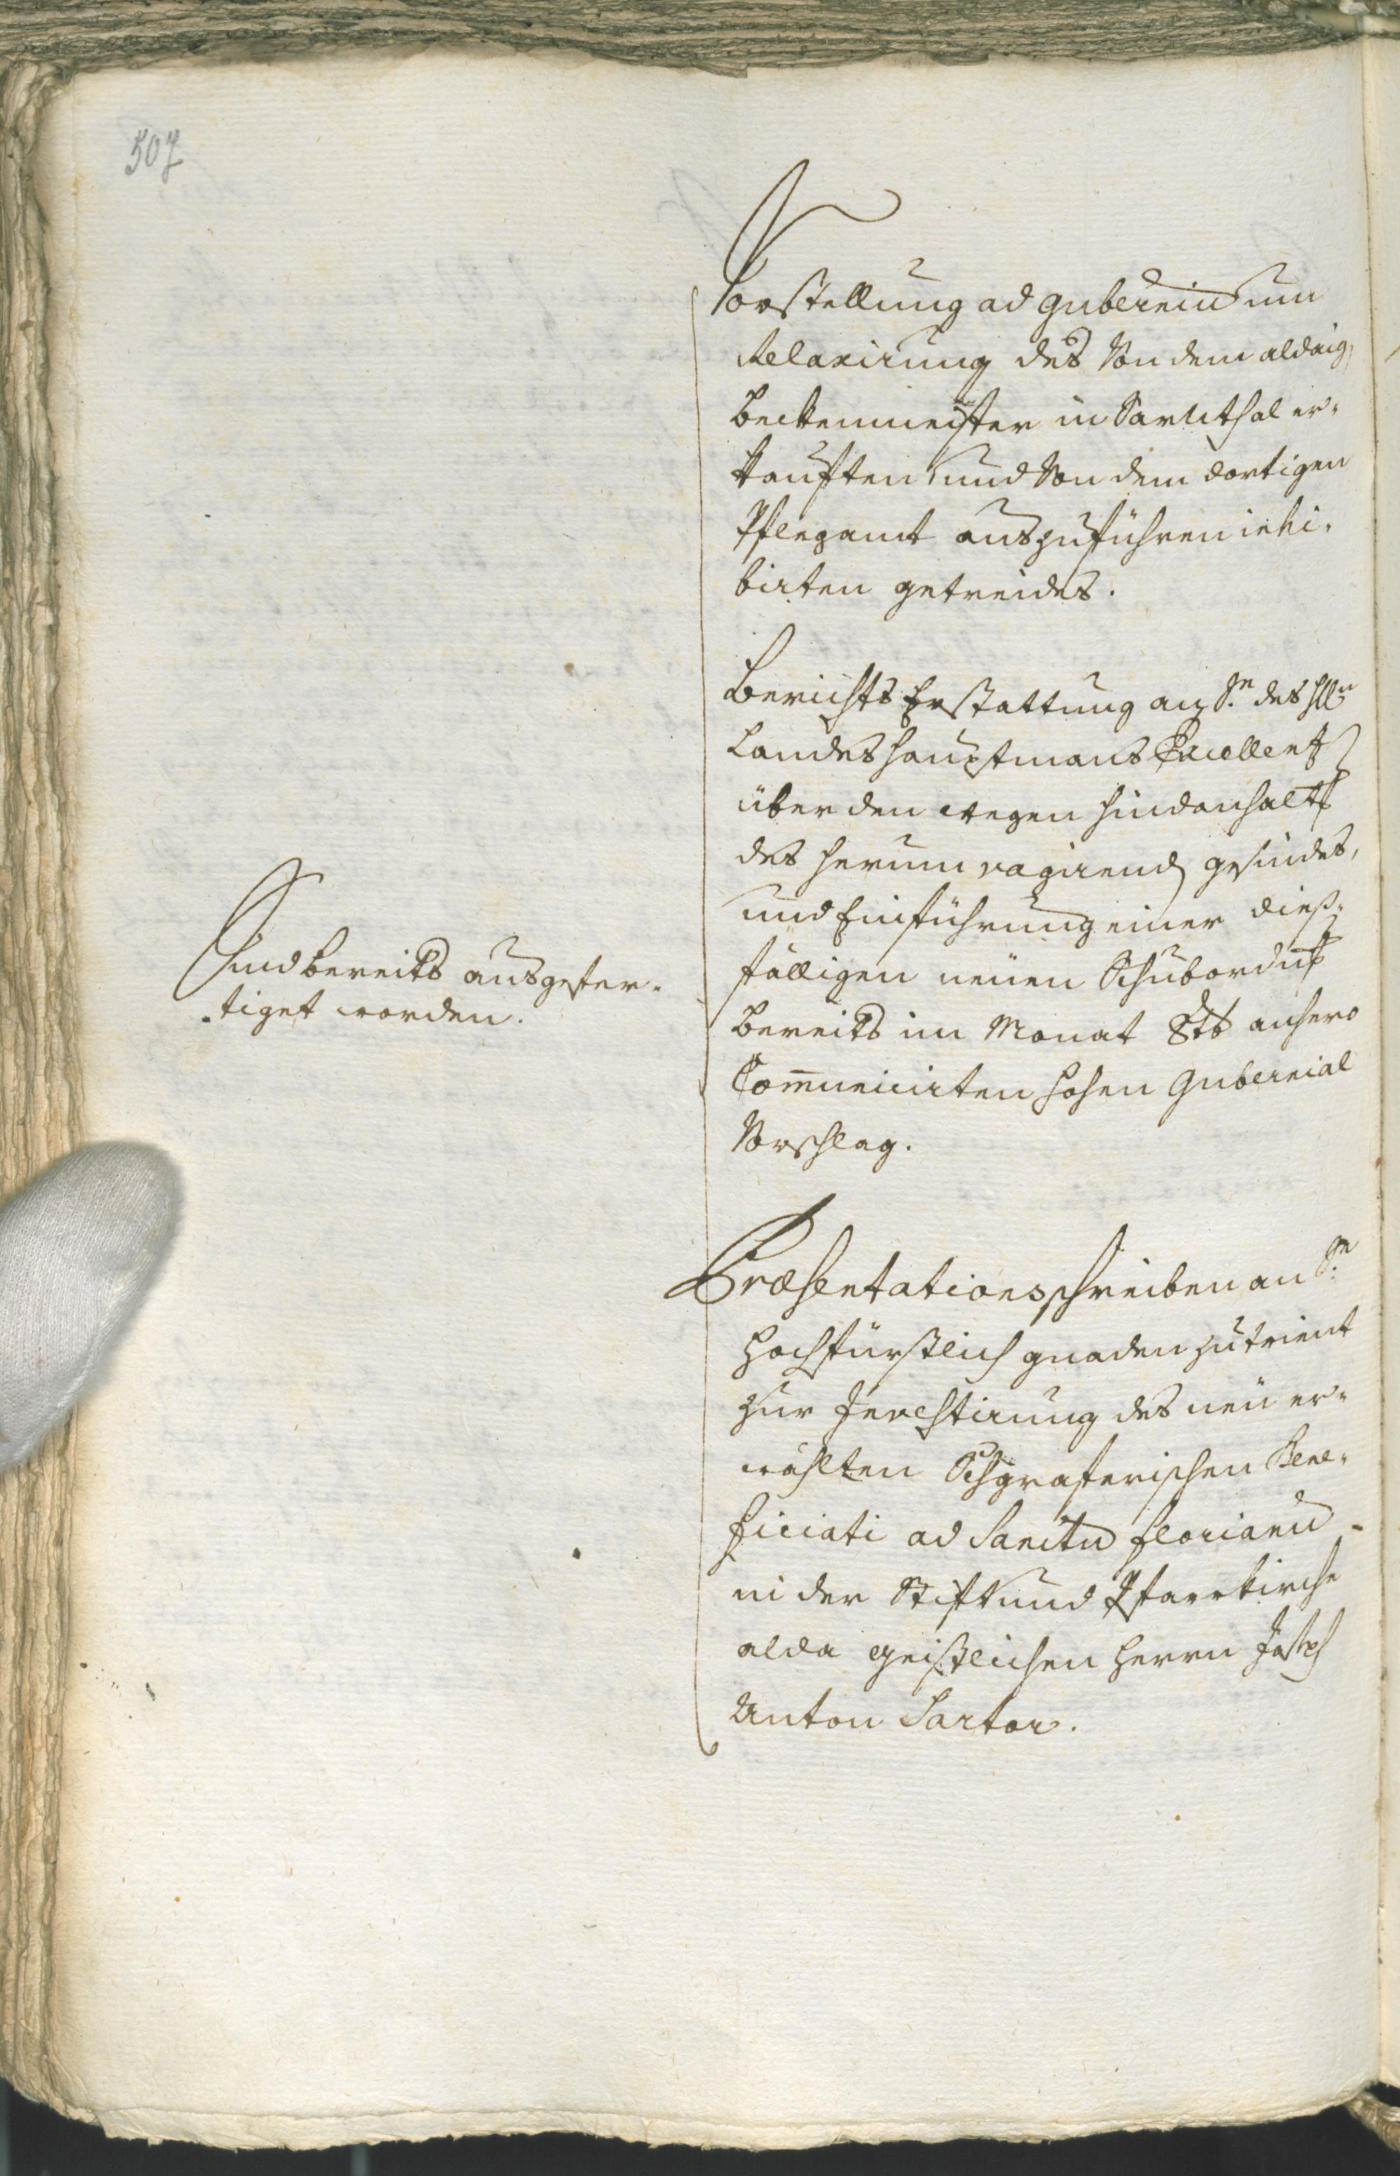 507
Vorstellung ad Gubernium um
Relaxirung des von dem aldaig.
Beckenmeister in Sarnthal er-
kauften und von dem dortigen
Pflegamt auszuführen inhi-
birten getreides.
Berichts Erstattung an Sr. des Hln
Landeshauptmans Excellenz
über den wegen hindanhalts
des herum vagirend gesindes,
und Einführung einer dieß-
fälligen neuen Schubordnung
bereits im Monat 8tb anhero
Communicirten hohen Gubernial
Vorschlag.
Sind bereits ausgefer-
tiget worden.
Præsentationsschreiben an Sr.
Hochfürstlich gnaden zu trient
zur Investirung des neu er-
wählten Schgrafferischen Bene-
ficiati ad Sanctum Florianum
in der Stift und Pfarrkirche
alda geistlichen Herrn Joseph
Anton Sartor.